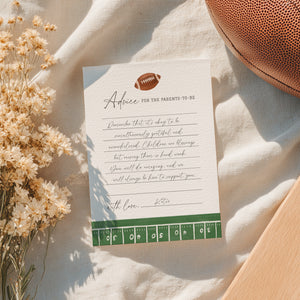 Advice FOR THE PARENTS-TO-BE
Remember that it's okay to be
simultaneously grateful and
overwhelmed. Children are blessings
but raising them is hard work.
You will do amazing, and we
will always be here to support you.
With love, Katie